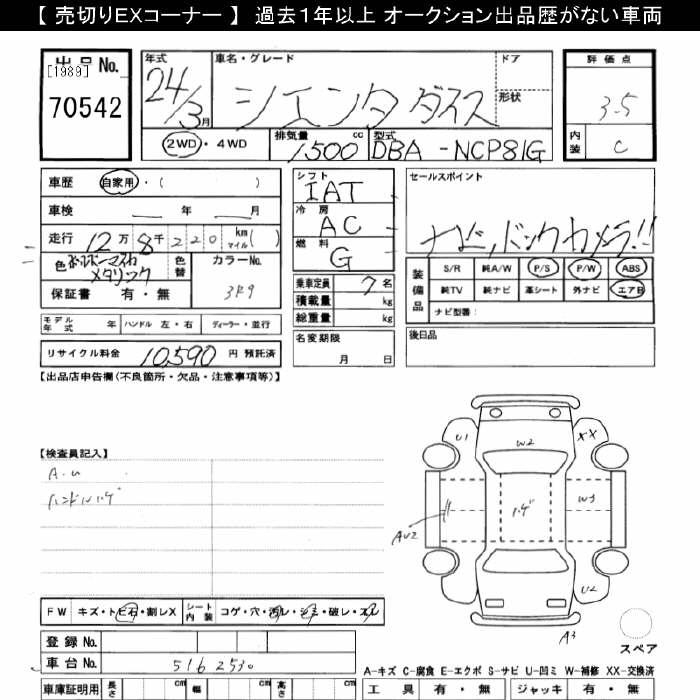 【 売切りEXコーナー 】 過去1年以上 オークション出品歴がない車両
出品No.
[1989]
70542
年式
24/3月
車名・グレード
シエンタ ダイス
ドア
形状
評価点
3.5
内装
C
2WD・4WD
排気量
1500cc
型式
DBA-NCP81G
車歴 自家用・( )
車検 年 月
走行 12万8千220 km マイル( )
色
メタリック
色替
カラーNo.
3R9
保証書 有・無
シフト
IAT
冷房
AC
燃料
G
乗車定員 7名
積載量 kg
総重量 kg
名変期限
月 日
セールスポイント
ナビ、バックカメラ!!
装備品
S/R 純A/W P/S P/W ABS
純TV 純ナビ 革シート 外ナビ エアB
ナビ型番:
後日品
モデル年式 年 ハンドル 左・右 ディーラー・並行
リサイクル料金 10,590 円 預託済
【出品店申告欄(不良箇所・欠品・注意事項等)】
【検査員記入】
A.U
ハンドルハゲ
U1
W2
XX
AU2
ハゲ
W3
U2
A3
スペア
FW キズ・トビ石・割レX シート内装 コゲ・穴・汚レ・シミ・破レ・スレ
登録No.
車台No. 5162530
A-キズ C-腐食 E-エクボ S-サビ U-凹ミ W-補修 XX-交換済
車庫証明用 長さ cm 幅 cm 高さ cm
工具 有・無 ジャッキ 有・無